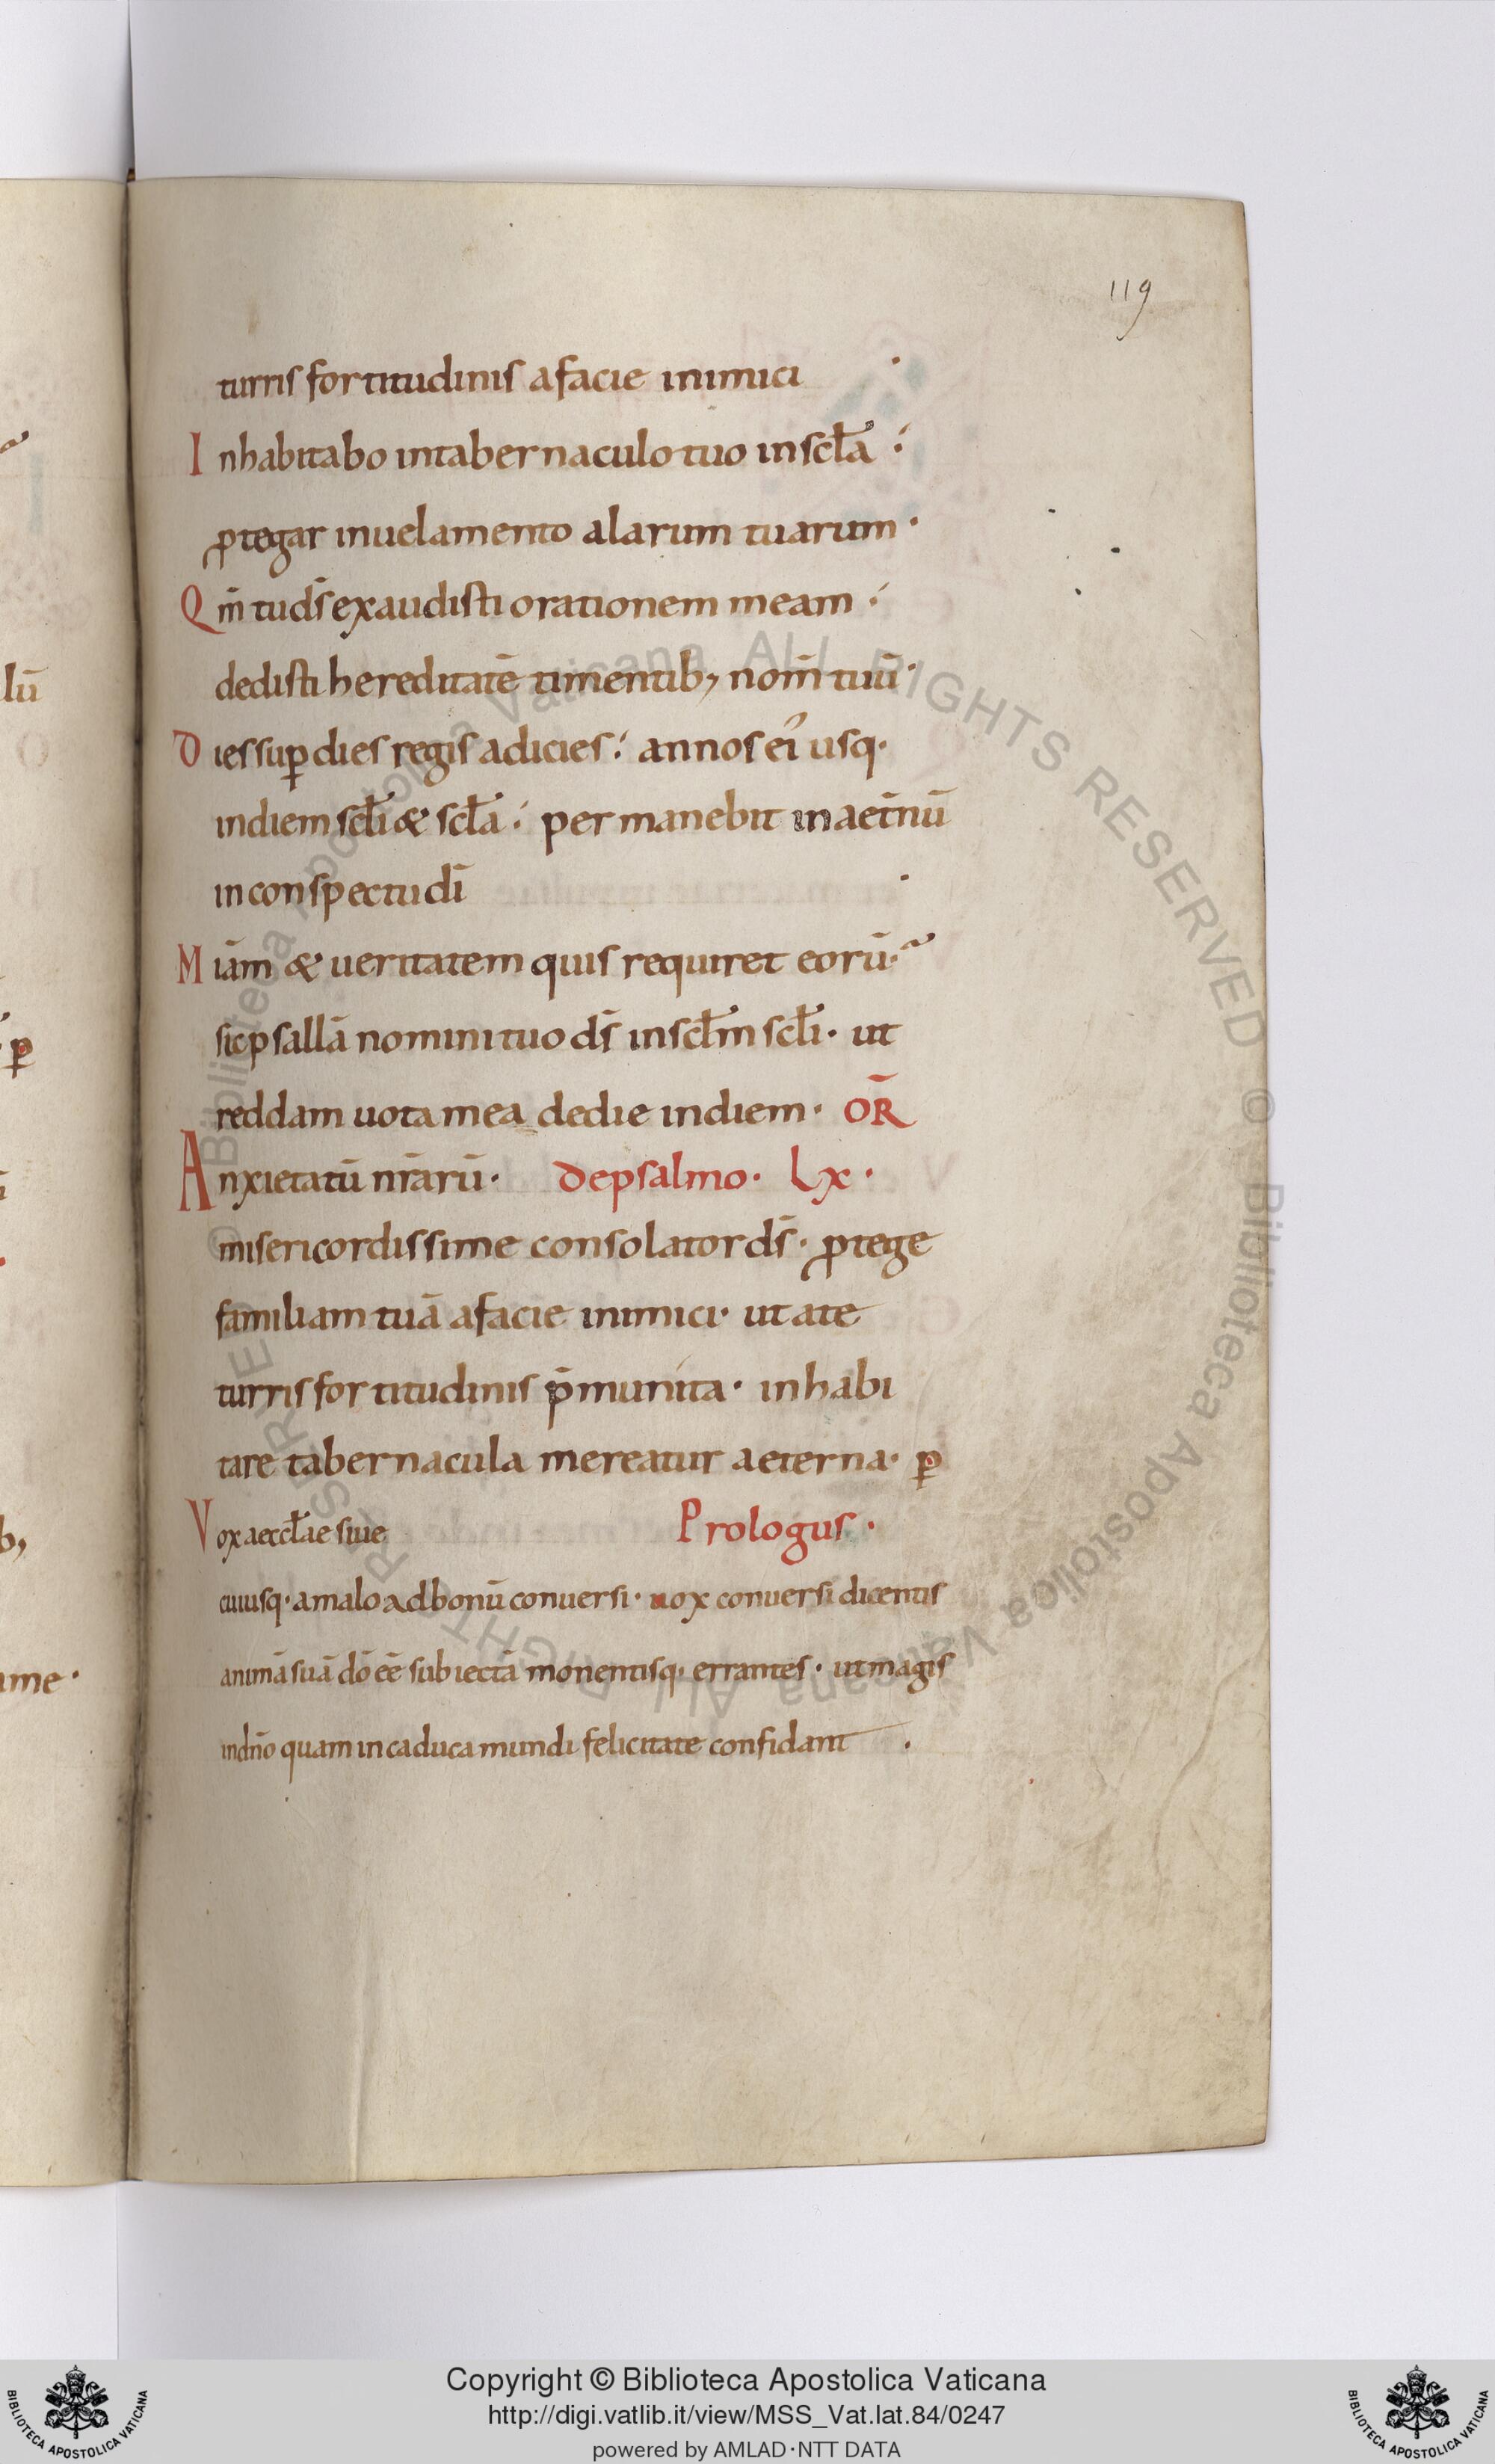 119
turris fortitudinis a facie inimici ·
Inhabitabo in tabernaculo tuo in scl̅a ·
ꝓtegar in uelamento alarum tuarum ·
Qm̅ tu ds̅ exaudisti orationem meam ·
dedisti hereditatē timentib; nom̅ tuū ·
Dies suꝑ dies regis adicies · annos ei᾽ usq·
in diem scl̅i & scl̅a · permanebit in aet̅nū
in conspectu di̅ ·
Miam̅ & ueritatem quis requiret eorū ·
sic psallā nomini tuo ds̅ in scl̅m scl̅i · ut
reddam uota mea de die in diem · OR̅
Anxietatū nr̅arū · De psalmo · Lx ·
misericordissime consolator ds̅ · ꝓtege
familiam tuā a facie inimici · ut a te
turris fortitudinis p̅munita · inhabi
tare tabernacula mereatur aeterna · ꝑ
Vox aeccl̅ae siue Prologus ·
cuiusq· a malo ad bonū conuersi · uox conuersi dicentis
animā suā dō eē subiectā monentisq· errantes · ut magis
in dn̅o quam in caduca mundi felicitate confidant ·
lū
ꝑ
b;
ime ·
© Biblioteca Apostolica Vaticana ALL RIGHTS RESERVED © Biblioteca Apostolica Vaticana ALL RIGHTS RESERVED
Copyright © Biblioteca Apostolica Vaticana
http://digi.vatlib.it/view/MSS_Vat.lat.84/0247
powered by AMLAD·NTT DATA
BIBLIOTECA APOSTOLICA VATICANA
BIBLIOTECA APOSTOLICA VATICANA